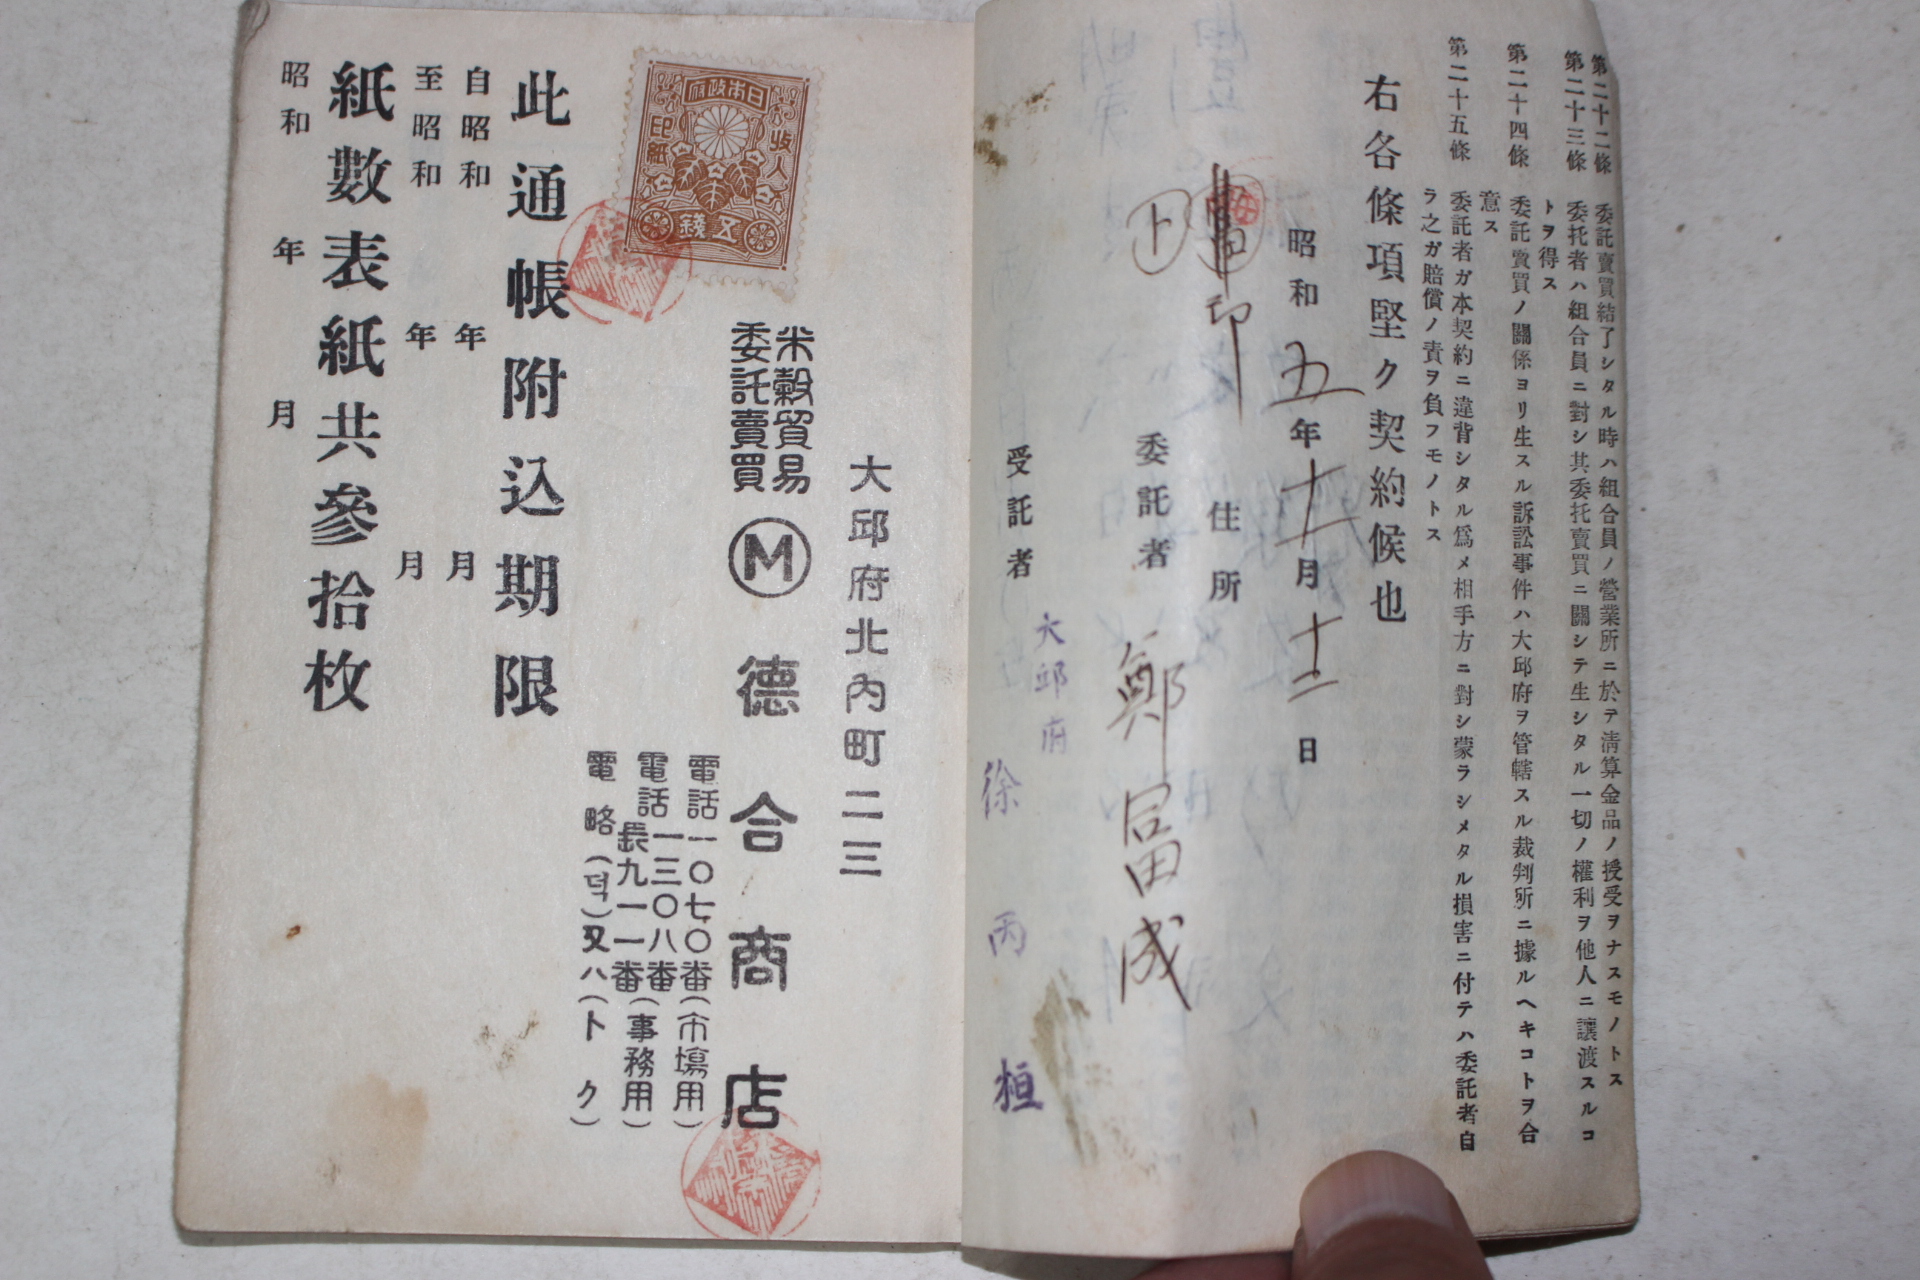 第二十二條 委託賣買結了シタル時ハ組合員ノ營業所ニ於テ淸算金品ノ授受ヲナスモノトス
第二十三條 委托者ハ組合員ニ對シ其委托賣買ニ關シテ生シタル一切ノ權利ヲ他人ニ讓渡スルコ
トヲ得ス
第二十四條 委託賣買ノ關係ヨリ生スル訴訟事件ハ大邱府ヲ管轄スル裁判所ニ據ルヘキコトヲ合
意ス
第二十五條 委託者ガ本契約ニ違背シタル爲メ相手方ニ對シ蒙ラシメタル損害ニ付テハ委託者自
ラ之ガ賠償ノ責ヲ負フモノトス
右各條項堅ク契約候也
昭和五年十一月十二日
住所
印
委託者 鄭富成
ト
大邱府
受託者 徐丙桓
大邱府北內町二三
米穀貿易
委託賣買
M 德合商店
電話一〇七〇番(市場用)
電話一三〇八番
長九一一番(事務用)
電略(덕)又ハ(トク)
日本政府
收入
印紙
五錢
此通帳附込期限
自昭和 年 月
至昭和 年 月
紙數表紙共參拾枚
昭和 年 月